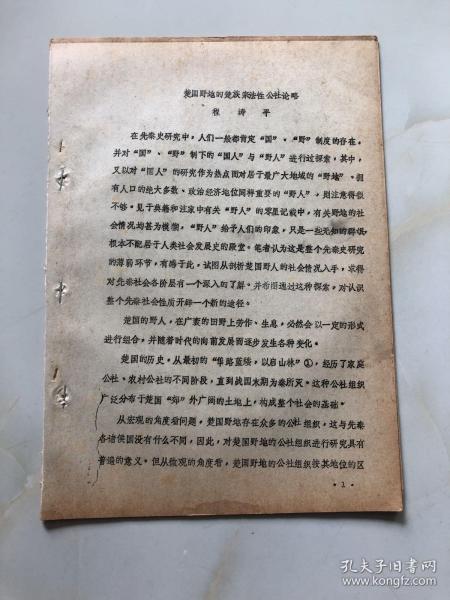 楚国野地的楚族宗法性公社论略
程涛平
在先秦史研究中，人们一般都肯定“国”、“野”制度的存在，
并对“国”、“野”制下的“国人”与“野人”进行过探索，其中，
又以对“国人”的研究作为热点而对居于最广大地域的“野地”、拥
有人口的绝大多数、政治经济地位同样重要的“野人”，则注意得很
不够。见于典籍和注家中有关“野人”的零星记载中，有关野地的社
会情况均甚为模糊，“野人”给予人们的印象，只是一些无知的群氓，
根本不配居于人类社会发展史的殿堂。笔者认为这是整个先秦史研究
的薄弱环节，有感于此，试图从剖析楚国野人的社会情况入手，求得
对先秦社会各阶层有一个深入的了解。并希图通过这种探索，对认识
整个先秦社会性质开辟一个新的途径。
楚国的野人，在广袤的田野上劳作、生息，必然会以一定的形式
进行组合，并随着时代的向前发展而逐步发生各种变化。
楚国的历史，从最初的“筚路蓝缕，以启山林”①，经历了家庭
公社、农村公社的不同阶段，直到战国末期为秦所灭。这种公社组织
广泛分布于楚国“郊”外广阔的土地上，构成整个社会的基础。
从宏观的角度看问题，楚国野地存在众多的公社组织，这与先秦
各诸侯国没有什么不同，因此，对楚国野地的公社组织进行研究具有
普遍的意义。但从微观的角度看，楚国野地的公社组织按其地位的区
·1·
孔夫子旧书网
www.kongfz.com